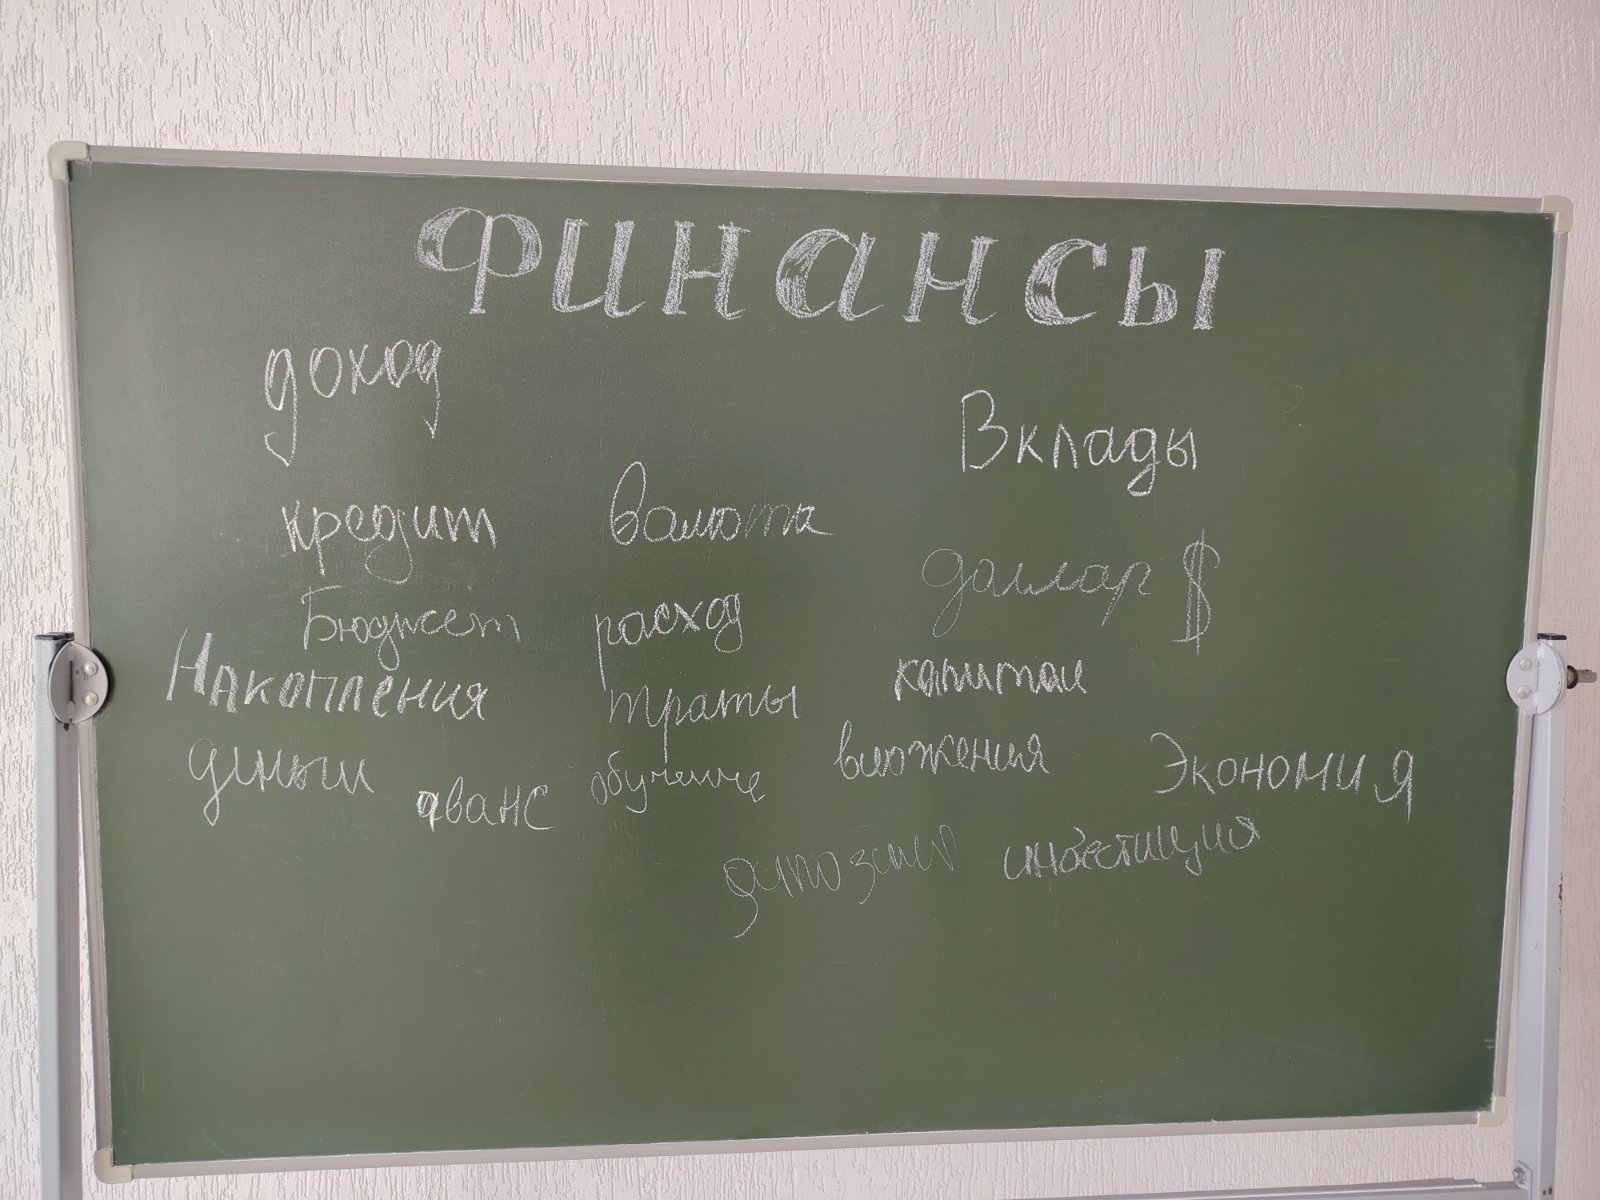 Финансы
доход
Вклады
кредит валюта
даллар $
Бюджет расход
Накопления траты капитал
деньги аванс обучение вложения Экономия
депозит инвестиция